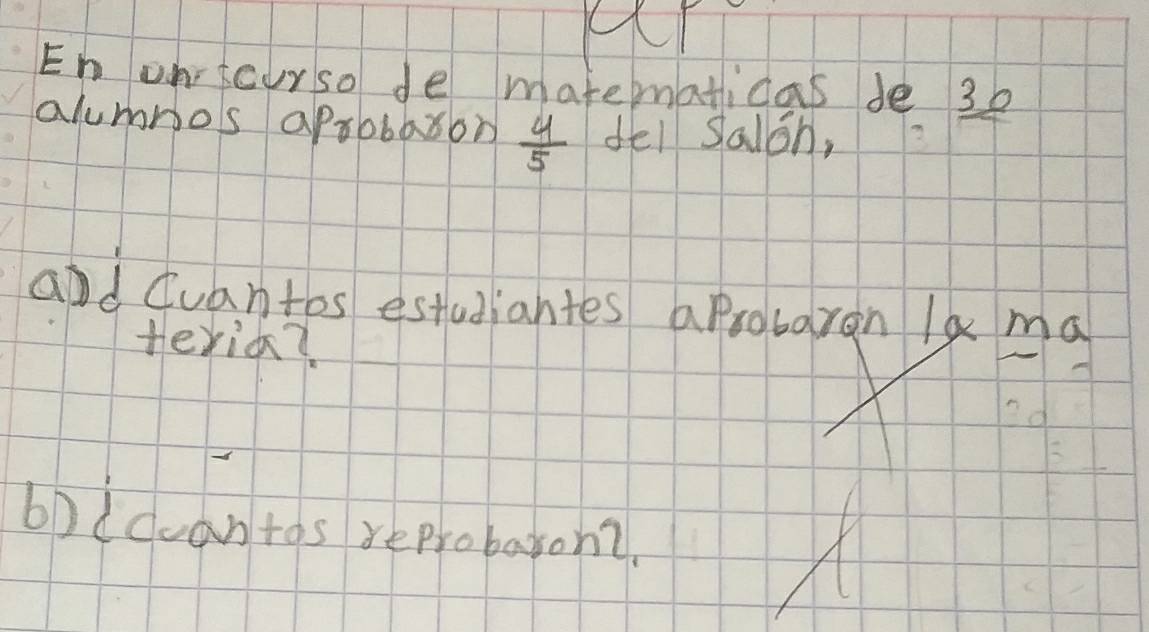 En un curso de matematicas de 30
alumnos aprobaron 4/5 del salón,
a) ¿Cuantos estudiantes aprobaron la ma
teria?
b) ¿cuantos reprobaron?